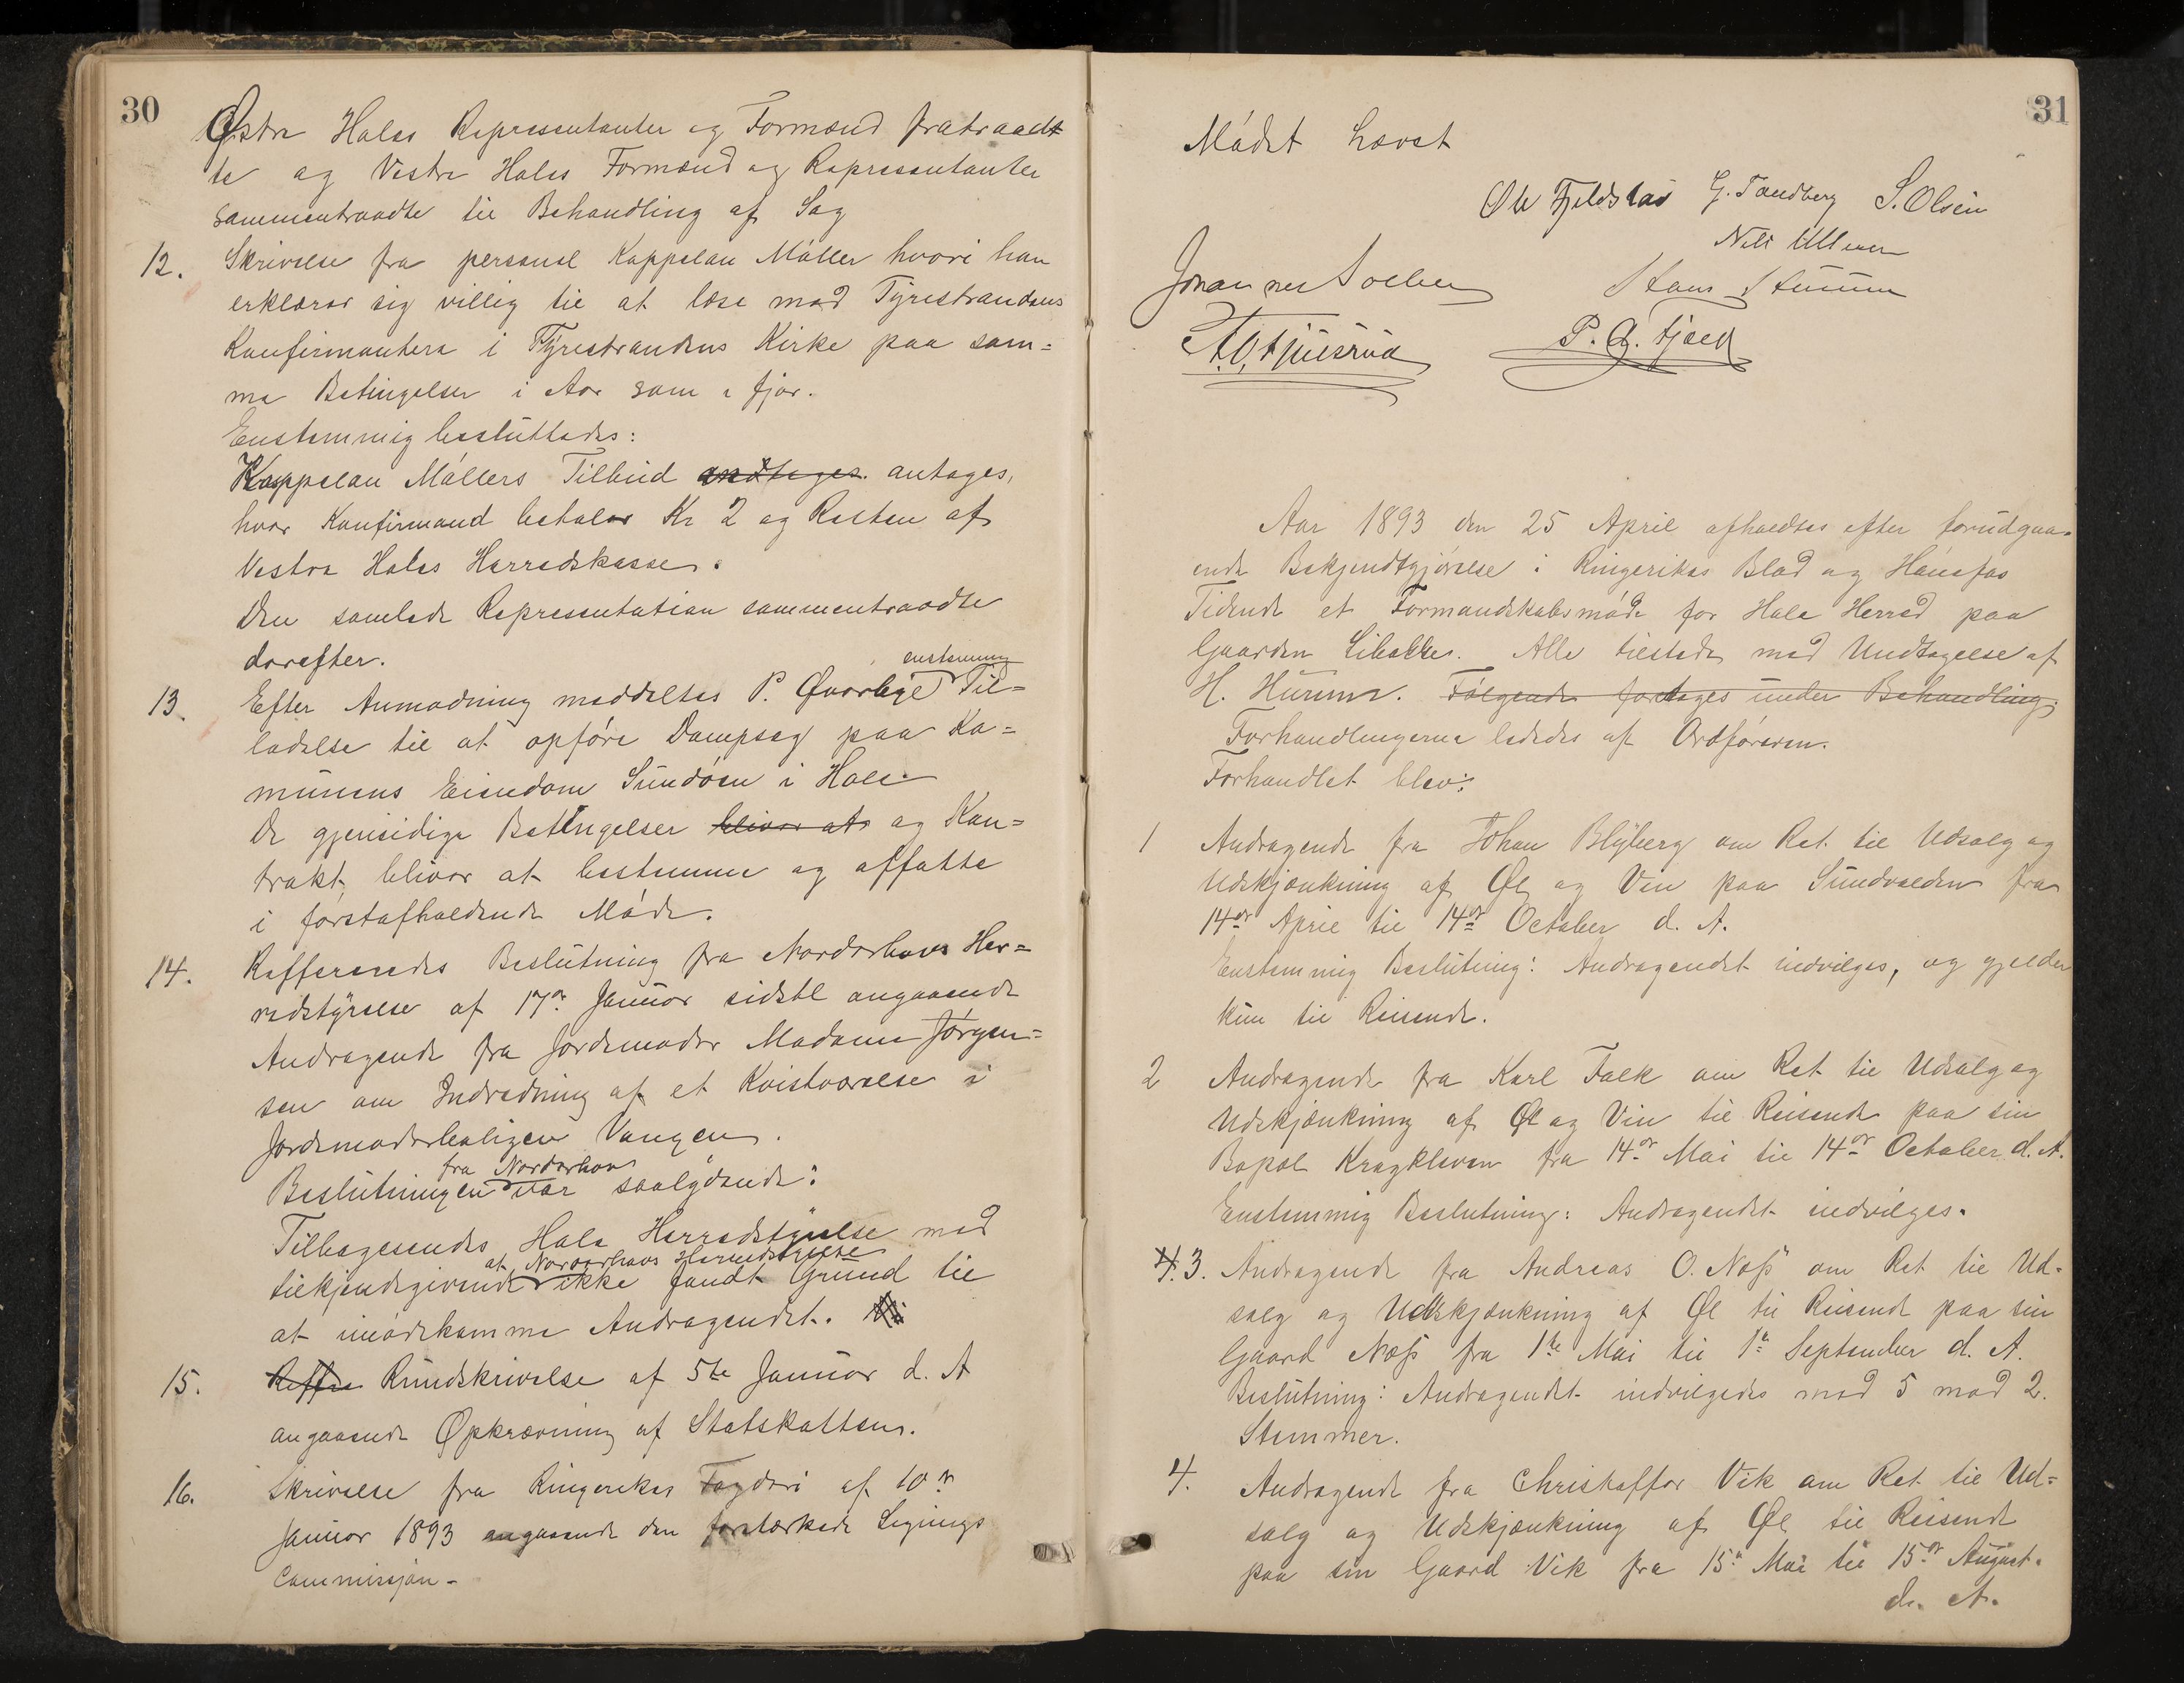 30
Østre Holes Repræsentanter og Formænd fratraadt
te og Vestre Holes Formænd og Repræsentanter
sammentraadte til Behandling af Sag
12. Skrivelse fra personel Kappelan Møller hvori han
erklærer sig villig til at læse med Tyrestrandens
Konfirmantere i Tyrestrandens Kirke paa sam=
me Betingelser i Aar som i fjor.
Enstemmig besluttedes:
Kappelan Møllers Tilbud antages,
hver Konfirmand betaler Kr 2 og Resten af
Vestre Holes Herredskasse.
Den samlede Representation sammentraadte
derefter.
enstemmig
13. Efter Anmodning meddeltes P. Øverbye Til=
ladelse til at opføre Dampsag paa Ko=
munens Eiendom Sundøen i Hole.
De gjensidige Betingelser bliver at og Kon=
trakt bliver at bestemme og affatte
i førstafholdende Møde.
14. Refferesedes Beslutning fra Norderhovs Her=
redstyrelse af 17de Januar sidstl angaaende
Andragende fra Jordemoder Madame Jørgen=
sen om Indredning af et Kvistværelse i
Jordemoderboligen Vangen.
fra Norderhov
Beslutningen var saalydende:
Tilbagesendes Hole Herredstyrelse med
at Norderhovs Herredstyrelse
tilkjendegivende ikke fandt Grund til
at imødekomme Andragendet.
15. Reffre Rundskrivelse af 5te Januar d. A
angaaende Opkrævning af Statskatten.
16. Skrivelse fra Ringerikes Fogderi af 10de
Januar 1893 angaaende den forstærkede Lignings
Commissjon-
31
Mødet hævet
Ole Fjeldstad G. Tandberg S. Olsen
Nils Ullern
Johannes Solberg Hans Hurum
P. G. Fjeld
Aar 1893 den 25 April afholdtes efter forudgaa=
ende Bekjendtgjørelse i Ringerikes Blad og Hønefos
Tidende et Formandskabsmøde for Hole Herred paa
Gaarden Libakke. Alle tilstede med Undtagelse af
H. Hurum. Følgende foretages under Behandling:
Forhandlingerne lededes af Ordføreren.
Forhandlet blev:
1 Andragende fra Johan Blyberg om Ret til Udsalg og
Udskjænkning af Øl og Vin paa Sundvolden fra
14de April til 14de October d. A.
Enstemmig Beslutning: Andragendet indvilges, og gjelder
kun til Reisende.
2 Andragende fra Karl Falk om Ret til Udsalg og
Udskjænkning af Øl og Vin til Reisende paa sin
Bopæl Kragkleven fra 14de Mai til 14de October d. A.
Enstemmig Beslutning: Andragendet indvilges.
4. 3. Andragende fra Andreas O. Næss om Ret til Ud=
salg og Udskjænkning af Øl til Reisende paa sin
Gaard Næss fra 1te Mai til 1te September d. A.
Beslutning: Andragendet indvilgedes med 5 mod 2.
Stemmer.
4. Andragende fra Christoffer Vik om Ret til Ud=
salg og Udskjænkning af Øl til Reisende
paa sin Gaard Vik fra 15de Mai til 15de August.
d. A.